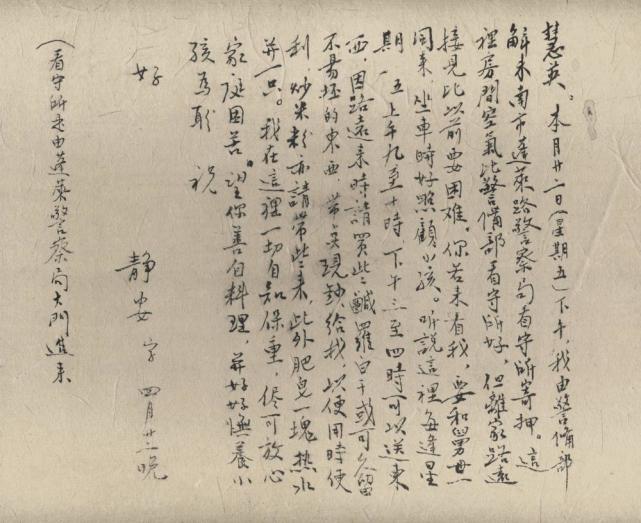 慧英。本月廿二日(星期五)下午,我由警備部
解来南市蓬萊路警察局看守所寄押。這
裡房間空氣比警備部看守所好,但離家路遠
接見比以前要困难。你若来看我,要和舅母一
同来,坐車時好照顧小孩。听說這裡每逢星
期一、五上午九至十時,下午三至四時可以送東
西,因路遠来時請買些鹹羅白干或可久留
不易坯的東西,帶些現鈔給我,以便用時便
利,炒米粉亦請帶些来,此外肥皂一塊熱水
并一只。我在這裡一切自知保重,儘可放心
家庭困苦。望你善自料理,并好好撫養小
孩為盼 祝
好
靜安字 四月廿二晚
(看守所走由蓬萊警察局大門進来